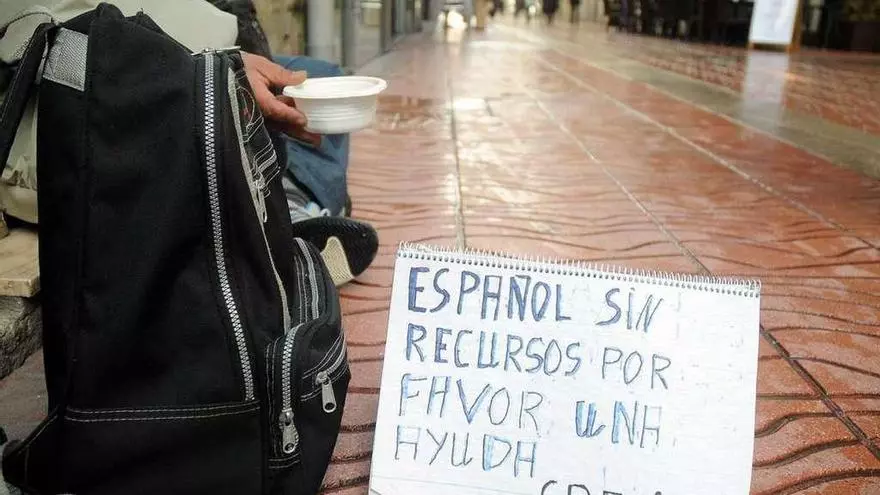 ESPAÑOL SIN
RECURSOS POR
FAVOR UNA
AYUDA